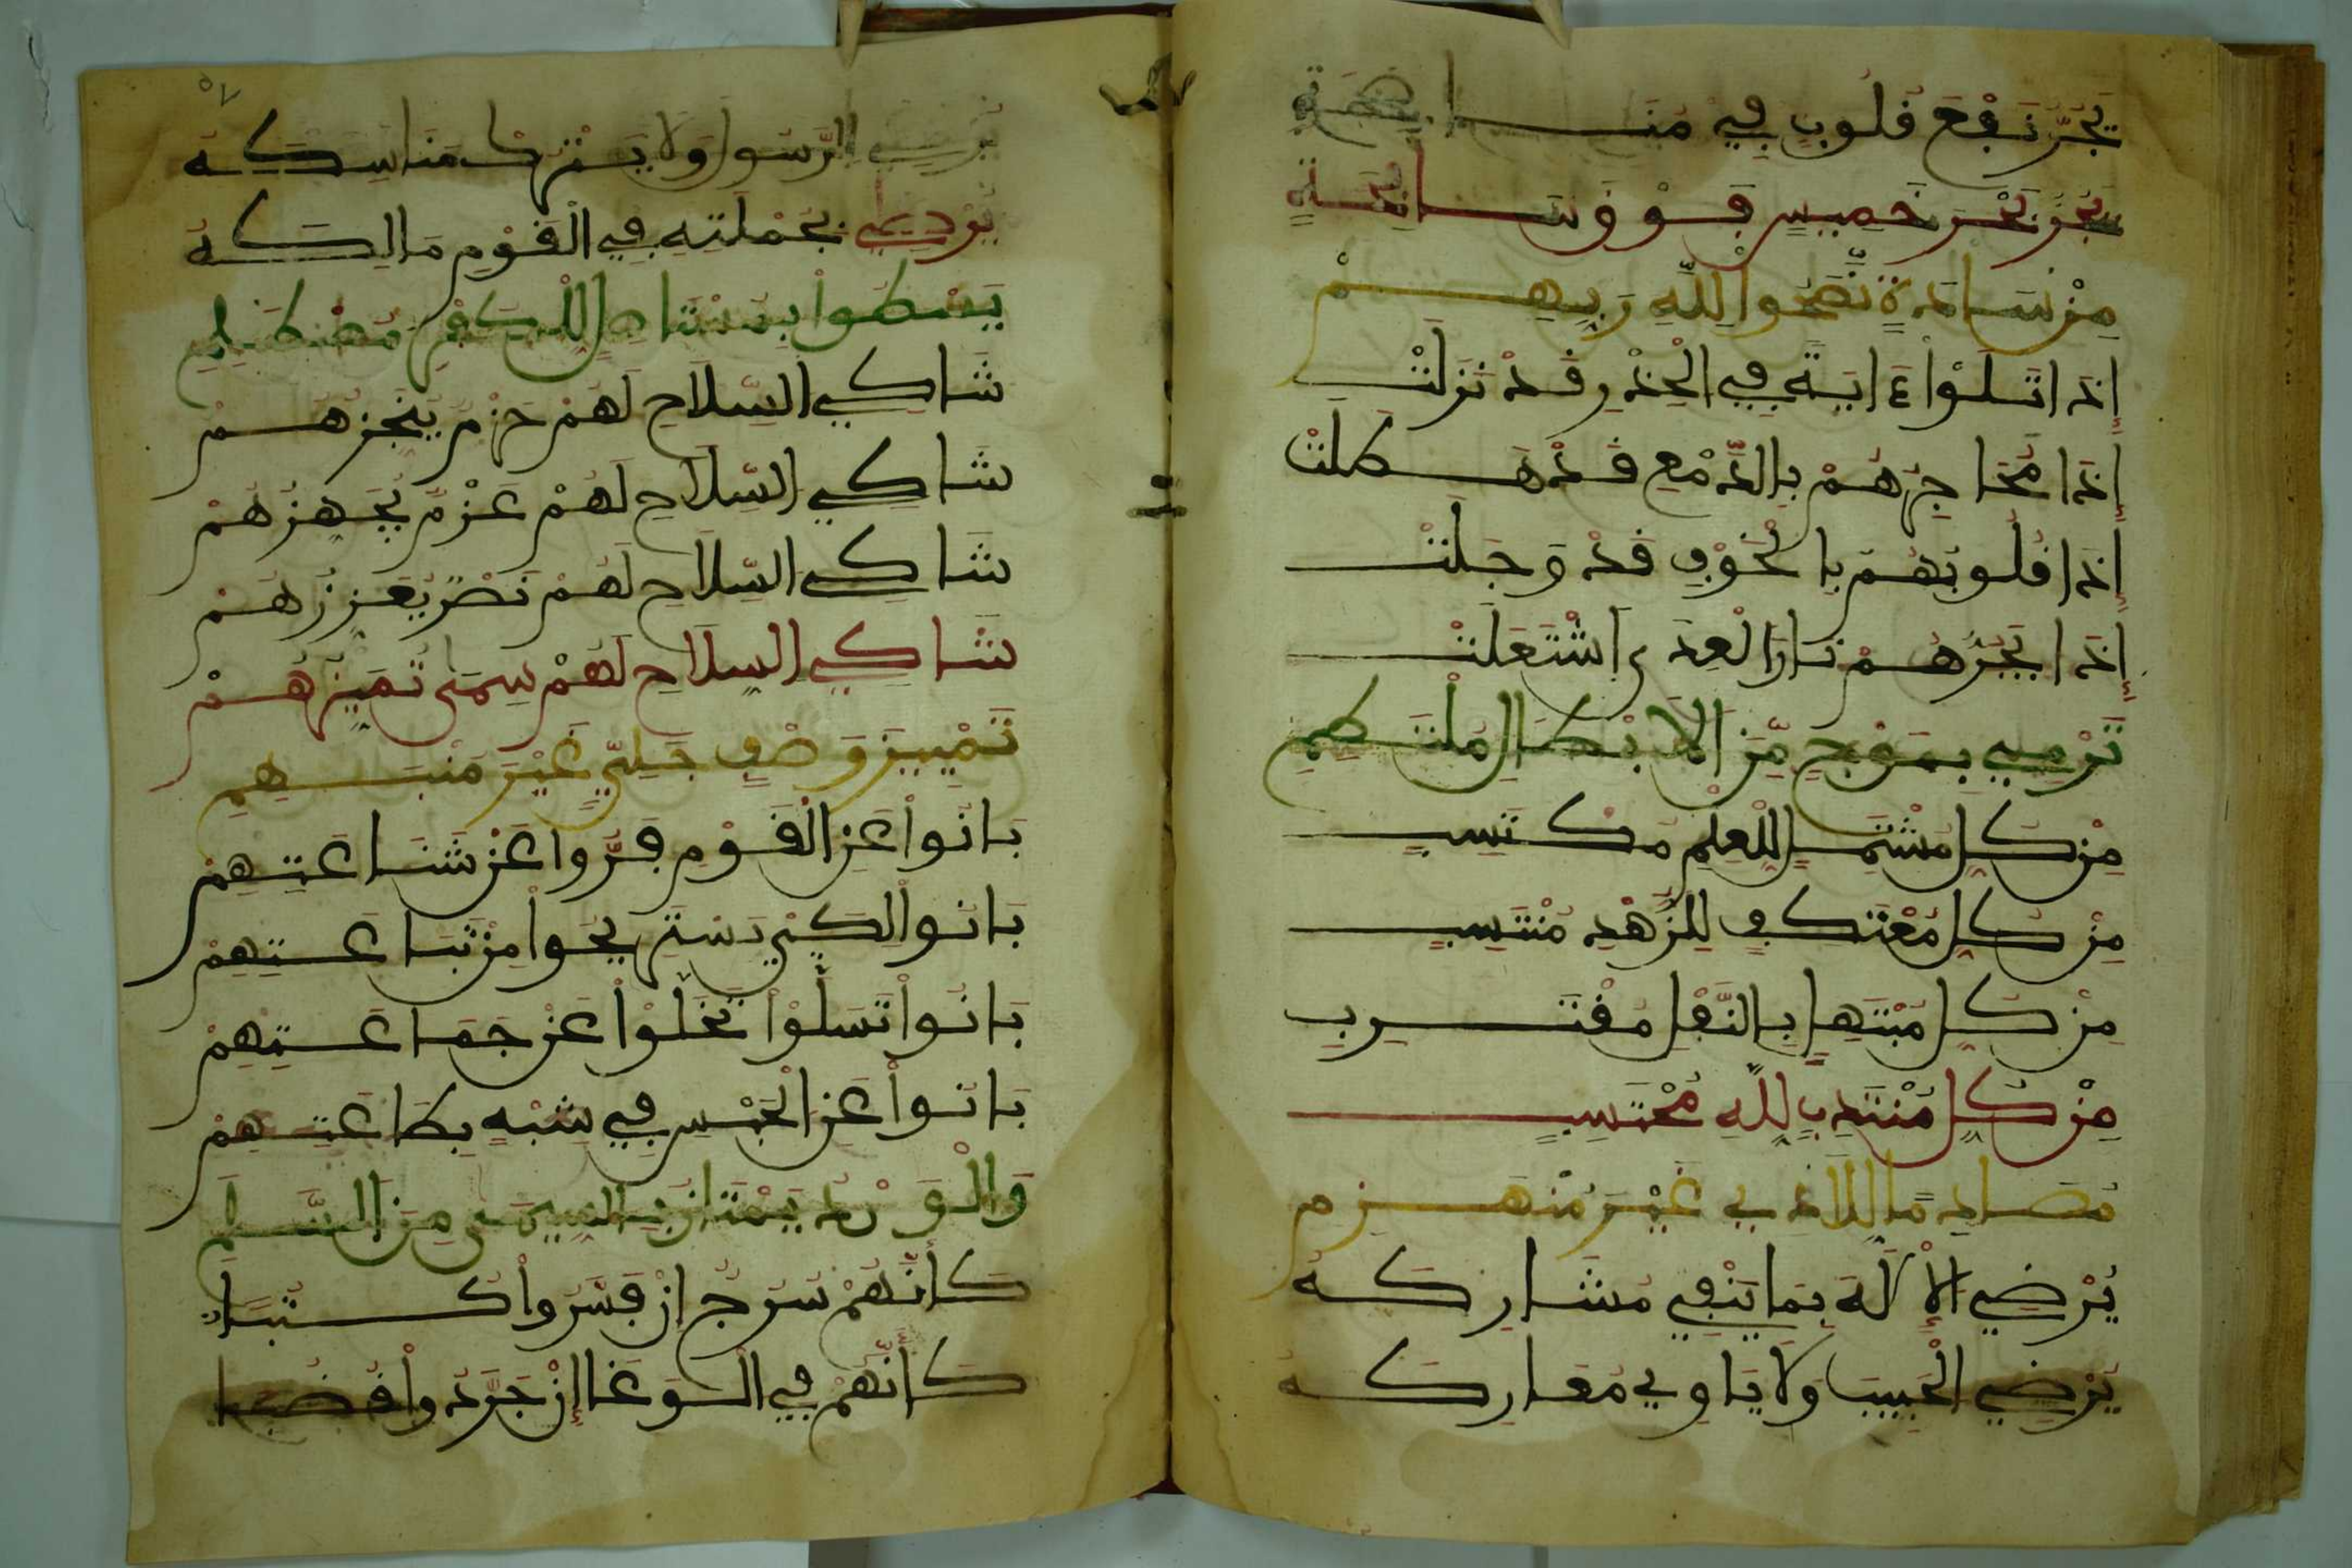 يَجُرُّ نَفْعَ قُلُوبٍ فِيهِ مَنَـــا
يَجُرُّ بَحْرَ خَمِيسٍ فَوْقَ سَابِحَةٍ
مِنْ سَادَةٍ نَصَحُوا لِلَّهِ رَبِّهِمْ
إِذَا تَلَوْا ءَايَةً فِي الْحِذْرِ قَدْ نَزَلَتْ
إِذَا مَحَاجِرُهُمْ بِالدَّمْعِ قَدْ هَطَلَتْ
إِذَا قُلُوبُهُمْ بِالْخَوْفِ قَدْ وَجَلَتْ
إِذَا بِحَرِّهِمْ نَارُ الْعِدَى اشْتَعَلَتْ
تَرْمِي بِمَوْجٍ مِّنَ الْأَبْطَالِ مُلْتَطِمِ
مِنْ كُلِّ مُشْتَمِلٍ لِلْعِلْمِ مُكْتَسِبٍ
مِنْ كُلِّ مُعْتَكِفٍ لِلزُّهْدِ مُنْتَسِبٍ
مِنْ كُلِّ مُبْتَهِلٍ بِالنَّفْلِ مُقْتَرِبِ
مِنْ كُلِّ مُنْتَدِبٍ لِلَّهِ مُحْتَسِبٍ
مُصَادِمًا لِلْأَذَى غَيْرَ مُنْهَزِمِ
يُرْضِي الْإِلَهَ بِمَا يَنْفِي مُشَارِكَهُ
يُرْضِي الْحَبِيبَ وَلَا يَاوِي مَعَارِكَهُ
يُرْضِي الرَّسُولَ وَلَا يَنْهَكْ مَنَاسِكَهُ
يُرْدِي بِحَمْلَتِهِ فِي الْقَوْمِ مَالِكَهُ
يَسْطُوا بِمُسْتَاصِلٍ لِلْكُفْرِ مُصْطَلِمِ
شَاكِي السِّلَاحِ لَهُمْ حَزْمٌ يُنْجِزُهُمْ
شَاكِي السِّلَاحِ لَهُمْ عَزْمٌ يُجَهِّزُهُمْ
شَاكِي السِّلَاحِ لَهُمْ نَصْرٌ يُعَزِّزُهُمْ
شَاكِي السِّلَاحِ لَهُمْ سِمَى تُمَيِّزُهُمْ
تَمْيِيزَ وَصْفٍ جَلِيٍّ غَيْرَ مُنْبَهِمِ
بَانُوا عَنِ الْقَوْمِ فَرُّوا عَنْ شَنَاعَتِهِمْ
بَانُوا لِكَيْ يَسْتَرِيحُوا مِنْ تَبَاعَتِهِمْ
بَانُوا تَسَلَّوْا تَخَلَّوْا عَنْ جَمَاعَتِهِمْ
بَانُوا عَنِ الْجِنْسِ فِي شِبْهِ بِطَاعَتِهِمْ
وَالْوَرْدُ يَمْتَازُ بِالسِّيمَى مِنَ السَّلَمِ
كَأَنَّهُمْ سُرُجٌ إِنْ فَسَّرُوا كُتُبًا
كَأَنَّهُمْ فِي الْوَغَا إِنْ جَرَّدُوا قُضُبًا